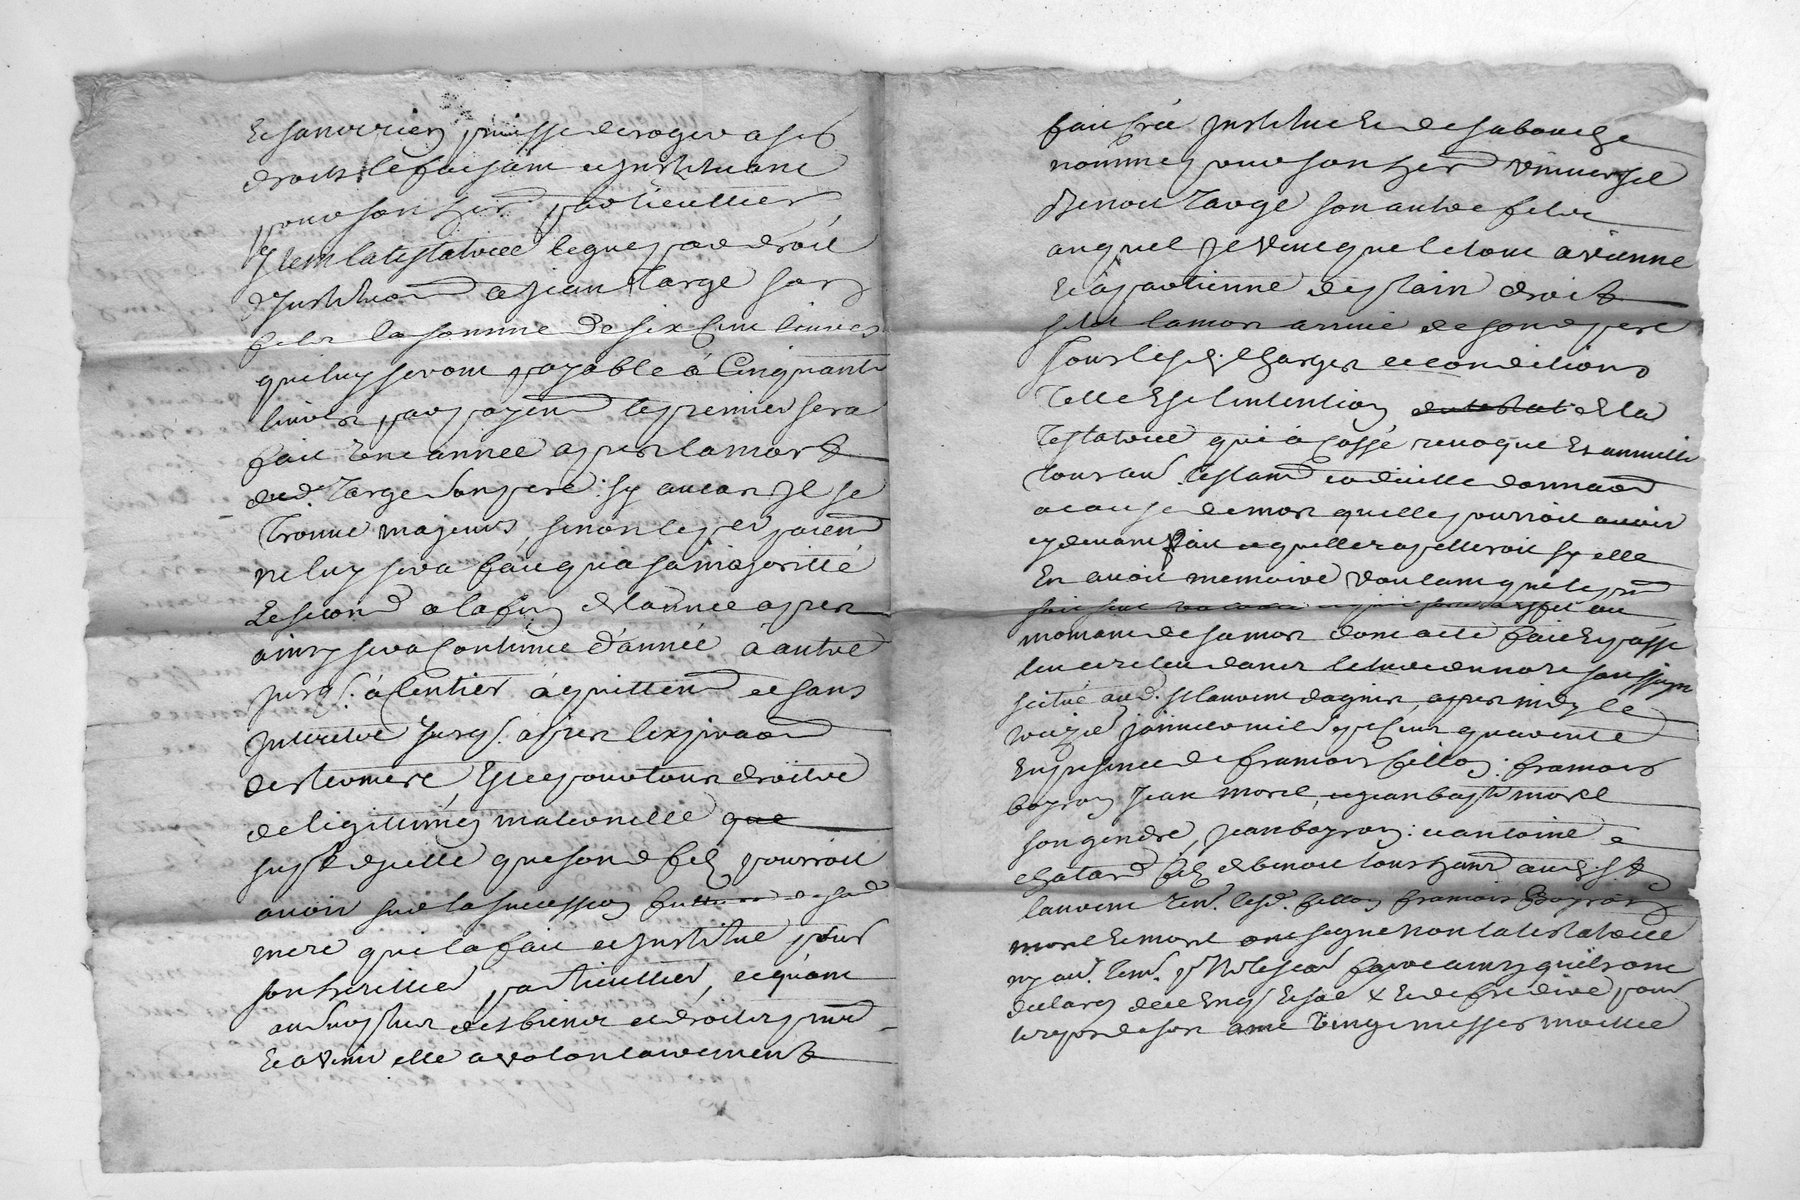 Et sans que rien puisse deroger a ses
droits le faisant et jnstituant
pour son her particullier
Jtem la testatrice legue par droit
d'jnstituon a jean Targe son
fils la somme de six cent livres
que luy seront payable à Cinquante
livres par payem le premier sera
fait une année apres la mort
dud Targe son pere : sy au cas jl se
trouve majeur, sinon le pr paiem
ne luy sera fait qu'a sa majoritté
Le second a la fin de l'année apres
ainsy sera continué d'année à autre
jusq. à l'entier acquittem et sans
jnteretz jusq. apres l'expiraon
des termes, Et ce pour tous droits
de legitimes maternelle que
sup d'jcelle que son d fils pourroit
avoir sur la succession future de sad
mere qui la fait et jnstitue pour
son heritier particullier, et quant
au surplus des biens et droits pnt
et avenir elle a volontairement
fait créé jnstitué et de sa bouche
nommés pour son her vniversel
Benoit Targe son autre fils
auquel je veut que le tout avienne
et apartienne de plain droit
sitot la mort arrivé de son d pere
sous les d. charges et conditions
Telle Est l'intention de la
Testatrice qui à cassé revoque Et annulle
tous au testam codicille donnaon
a cause de mort quelle pourroit avoir
cy devant fait et quelle rapelleroit sy elle
En avoit memoire voulant que le pnt
soit seul valable
moment de sa mort dont acte fait et passé
leu et releu dans letude du nore soussigné
scitué aud. St laurent dagny, apres midy le
janvier mil sept cent quarente
En presence de francois fillon : francois
boyron jean morel, et jean bapt morel
son gendre, jean boyron : et antoine
chatard fils de benoit tous hants aud S
laurent tem. les d. fillon francois Boyron
morel Et morel ont signé non la testatrice
ny au. tem. p ne lescavoir faire ainsy quils ont
declaré de ce enquis Et somé & Et de dire pour
le repos de son ame vingt messes moitié